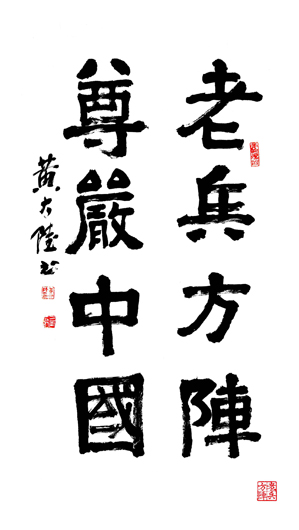 老兵方陣
尊嚴中國
黃大陸书